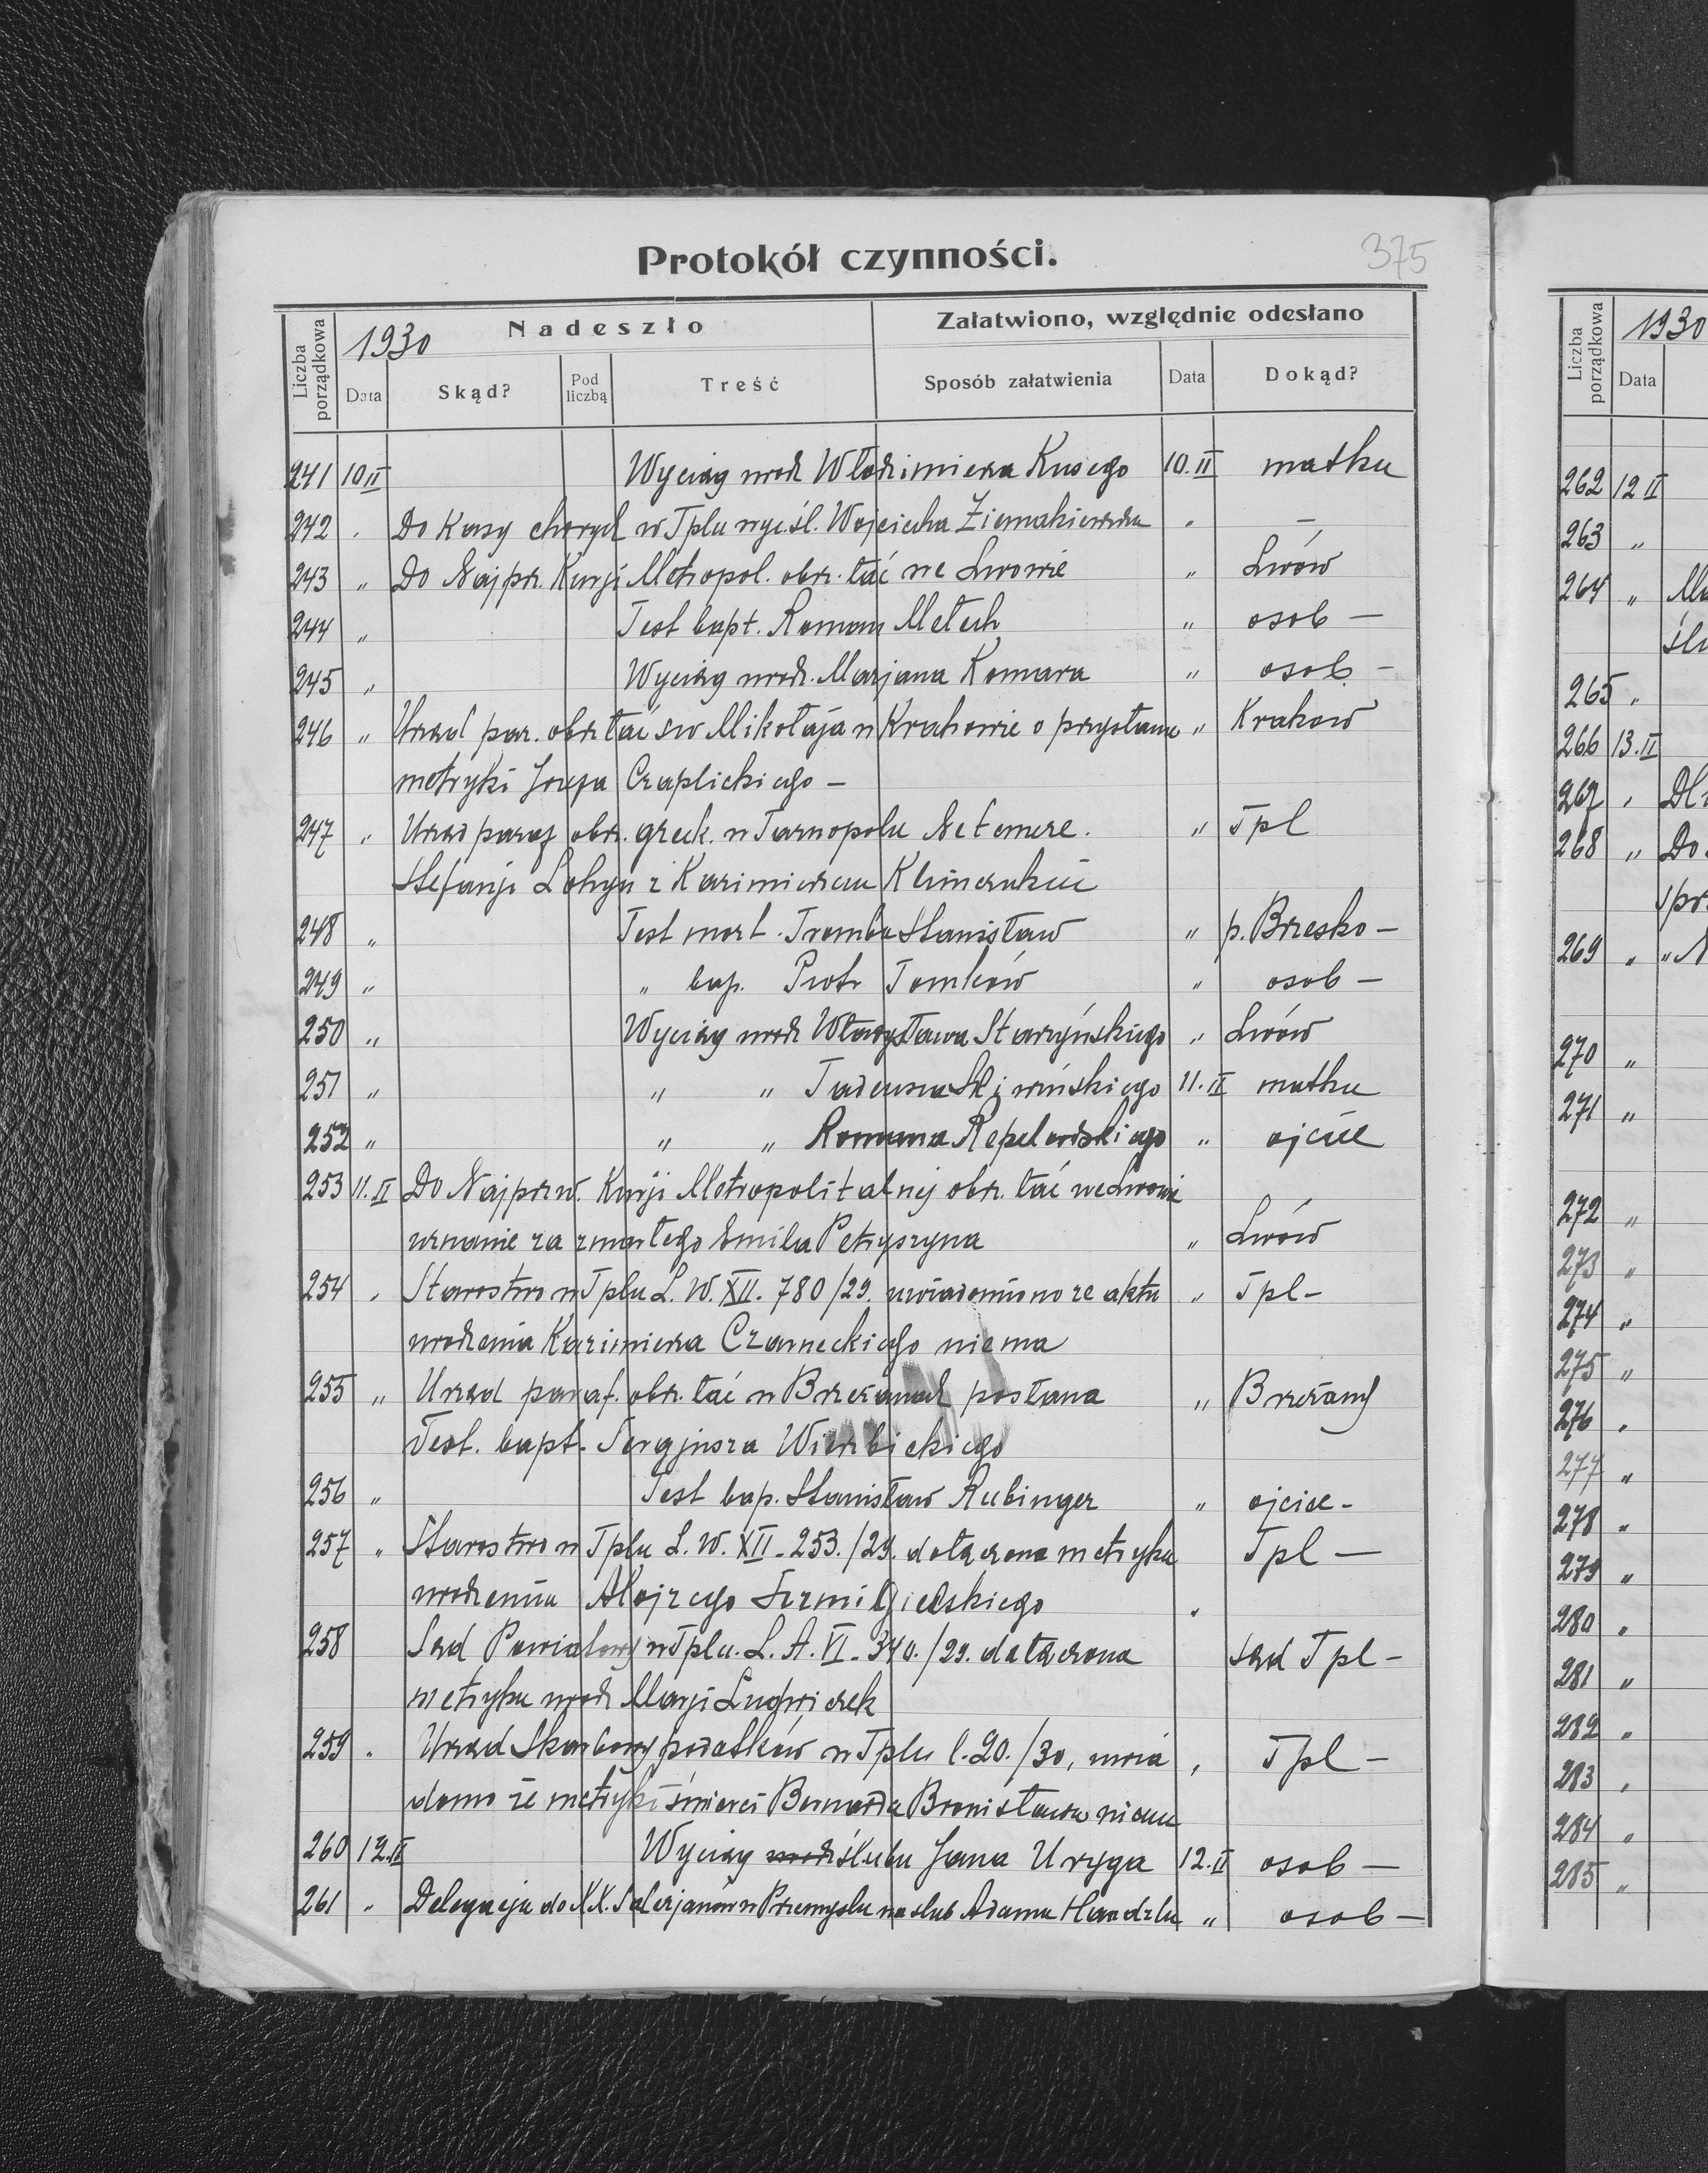 Protokół czynności.
375
Liczba porządkowa
1930
Nadeszło
Załatwiono, względnie odesłano
Data
Skąd?
Pod liczbą
Treść
Sposób załatwienia
Data
Dokąd?
241 10 II Wyciąg urodz Włodzimierza Kusego 10.II matka
242 " Do Kasy chorych w Tplu wyc. śl. Wojciecha " —
243 " Do Najprz. Kurji Metropol. obrz. łać we Lwowie " Lwów
244 " Test bapt. Roman Mełech " osob —
245 " Wyciąg urodz. Marjana Komara " osob —
246 " Urząd par. obrz łać św Mikołaja w Krakowie o przysłanie " Kraków
metryki Józefa Czaplickiego —
247 " Urząd paraf obrz. greck. w Tarnopolu Ne temere. " Tpl
Stefanji z Kazimierzem
248 " Test mort. Tromba Stanisław " p. Brzesko —
249 " " bap. Piotr Tomków " osob —
250 " Wyciąg urodz Władysława Starzyńskiego " Lwów
251 " " " Tadeusza Śliwińskiego 11.II matka
252 " " " Romana " ojciec
253 11.II Do Najprzew. Kurji Metropolitalnej obrz. łać we Lwowie
uznanie za zmarłego Emila Petryszyna " Lwów
254 " Starostwo w Tplu L. W. XII. 780/29. uwiadomiono że aktu " Tpl —
urodzenia Kazimierza Czarneckiego niema
255 " Urząd paraf. obrz. łać w Brzeżanach posłana " Brzeżany
Test. bapt. Sergjusza Wierzbickiego
256 " Test bap. Stanisław Rubinger " ojciec —
257 " Starostwo w Tplu L. W. XII. 253./29. dołączona metryka Tpl —
urodzenia Alojzego "
258 Sąd Powiatowy w Tplu. L. A. VI. 340./29. dołączona sąd Tpl —
metryka urodz Marji Ludwiczek
259 " Urząd Skarbowy podatków w Tplu l. 20./30, uwia " Tpl —
domo że metryki śmierci Bernarda Bronisława niema
260 12.II Wyciąg urodz ślubu Jana Uryga 12.II osob —
261 " Delegacja do XX. Salezjanów w Przemyślu na ślub Adama " osob —
Liczba porządkowa
1930
Data
262 12 II
263 "
264 "
265 "
266 13.II
267 "
268 " Do
269 "
270 "
271 "
272 "
273 "
274 "
275 "
276 "
277 "
278 "
279 "
280 "
281 "
282 "
283 "
284 "
285 "